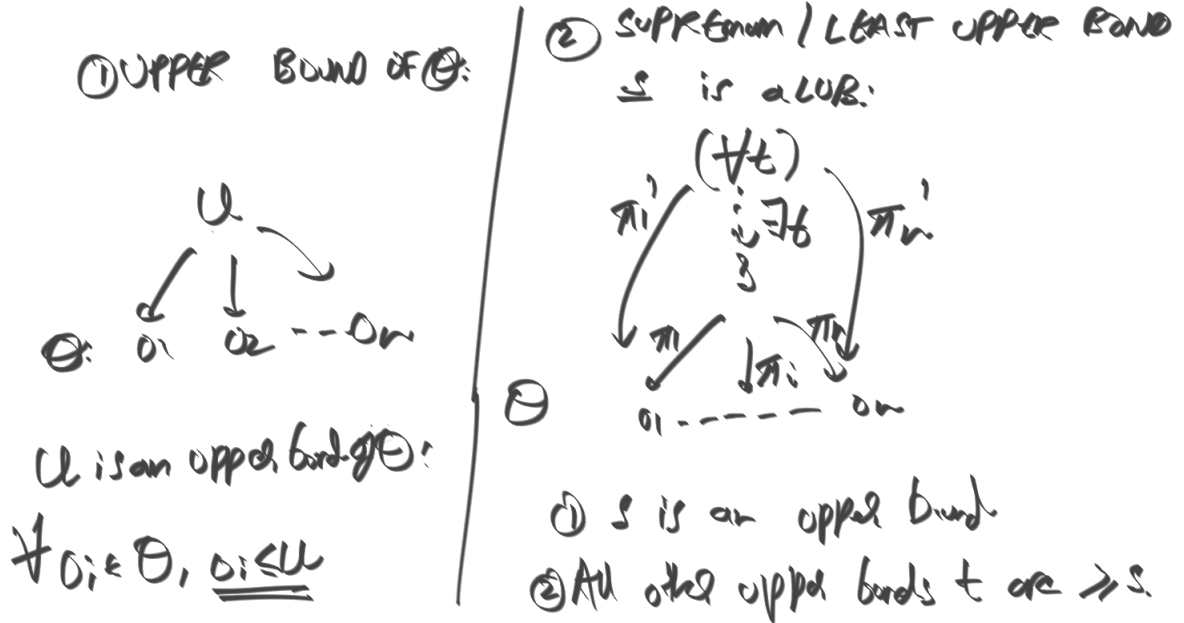 ① UPPER BOUND OF Θ:
U
Θ: O1 O2 --- On
U is an upper bound of Θ:
∀ Oi ∈ Θ, Oi ≤ U
② SUPREMUM / LEAST UPPER BOND
S is a LUB:
(∀t)
π1' ∃f πn'
S
π1 πi πn
Θ O1 ----- On
① S is an upper bound
② All other upper bonds t are ≥ S.